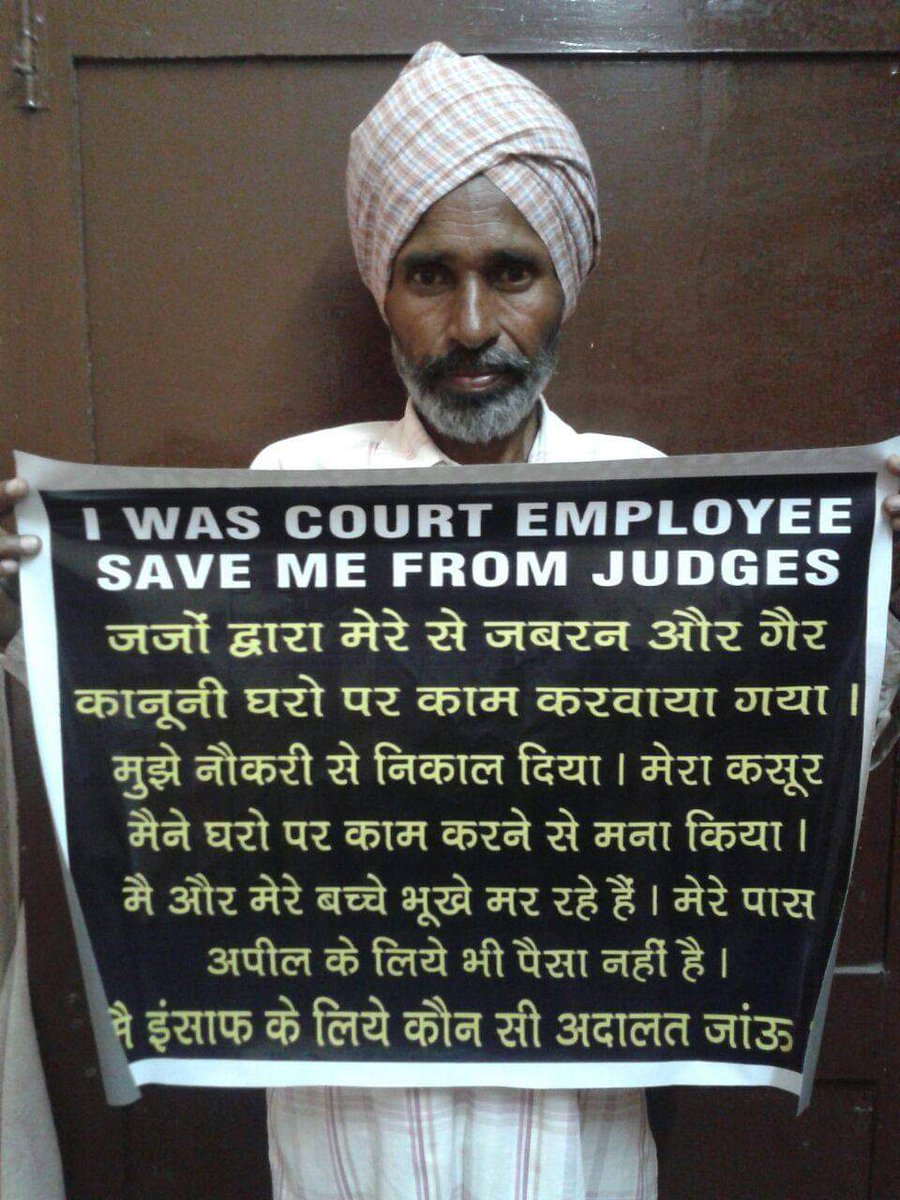 I WAS COURT EMPLOYEE
SAVE ME FROM JUDGES
जजों द्वारा मेरे से जबरन और गैर
कानूनी घरो पर काम करवाया गया ।
मुझे नौकरी से निकाल दिया । मेरा कसूर
मैने घरो पर काम करने से मना किया ।
मै और मेरे बच्चे भूखे मर रहे हैं । मेरे पास
अपील के लिये भी पैसा नहीं है ।
मै इंसाफ के लिये कौन सी अदालत जांऊ